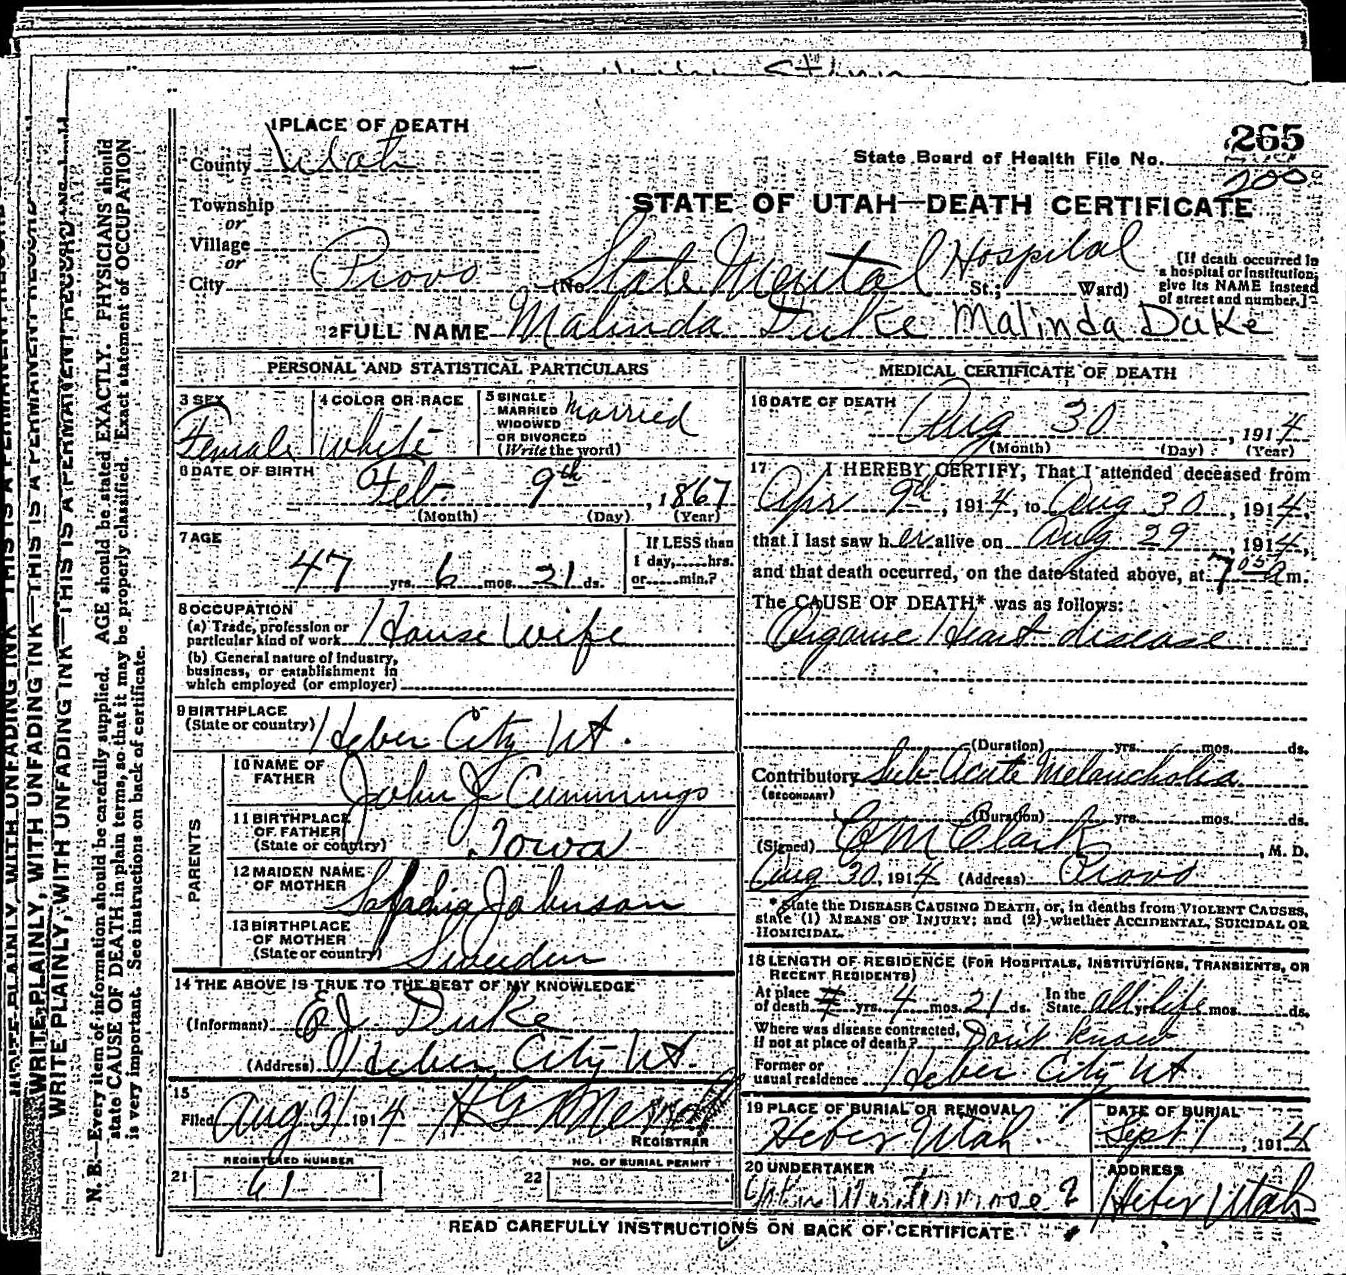 1 PLACE OF DEATH
County Utah
265
State Board of Health File No.
200
Township
or
Village
or
City Provo
STATE OF UTAH—DEATH CERTIFICATE
(No. State Mental Hospital St.; Ward)
[If death occurred in a hospital or institution, give its NAME instead of street and number.]
2 FULL NAME Malinda Duke Malinda Duke
PERSONAL AND STATISTICAL PARTICULARS
3 SEX Female
4 COLOR OR RACE White
5 SINGLE MARRIED WIDOWED OR DIVORCED (Write the word) Married
6 DATE OF BIRTH
Feb. 9th, 1867
(Month) (Day) (Year)
7 AGE
47 yrs. 6 mos. 21 ds.
If LESS than 1 day, hrs. or min.?
8 OCCUPATION
(a) Trade, profession or particular kind of work House Wife
(b) General nature of industry, business, or establishment in which employed (or employer)
9 BIRTHPLACE (State or country) Heber City Ut.
PARENTS
10 NAME OF FATHER John J Cummings
11 BIRTHPLACE OF FATHER (State or country) Iowa
12 MAIDEN NAME OF MOTHER Johnson
13 BIRTHPLACE OF MOTHER (State or country) Sweden
14 THE ABOVE IS TRUE TO THE BEST OF MY KNOWLEDGE
(Informant) Duke
(Address) Heber City Ut.
15
Filed Aug 31 1914
REGISTRAR
REGISTERED NUMBER
21 61
NO. OF BURIAL PERMIT
22
MEDICAL CERTIFICATE OF DEATH
16 DATE OF DEATH
Aug 30, 1914
(Month) (Day) (Year)
17 I HEREBY CERTIFY, That I attended deceased from
Apr 9th, 1914, to Aug 30, 1914,
that I last saw her alive on Aug 29, 1914,
and that death occurred, on the date stated above, at 7 05 a m.
The CAUSE OF DEATH* was as follows:
Organic Heart disease
(Duration) yrs. mos. ds.
Contributory (SECONDARY) Sub Acute Melancholia
(Duration) yrs. mos. ds.
(Signed) Clark, M. D.
Aug 30, 1914 (Address) Provo
*State the DISEASE CAUSING DEATH, or, in deaths from VIOLENT CAUSES,
state (1) MEANS OF INJURY; and (2) whether ACCIDENTAL, SUICIDAL OR
HOMICIDAL.
18 LENGTH OF RESIDENCE (FOR HOSPITALS, INSTITUTIONS, TRANSIENTS, OR RECENT RESIDENTS)
At place of death yrs. 4 mos. 21 ds. In the State all yrs. life mos. ds.
Where was disease contracted, if not at place of death? Don't know
Former or usual residence Heber City Ut
19 PLACE OF BURIAL OR REMOVAL Heber Utah.
DATE OF BURIAL Sept 1, 1914
20 UNDERTAKER
ADDRESS Heber Utah
READ CAREFULLY INSTRUCTIONS ON BACK OF CERTIFICATE
WRITE PLAINLY, WITH UNFADING INK—THIS IS A PERMANENT RECORD
WRITE PLAINLY, WITH UNFADING INK—THIS IS A PERMANENT RECORD
WRITE PLAINLY, WITH UNFADING INK—THIS IS A PERMANENT RECORD
N. B.—Every item of information should be carefully supplied. AGE should be stated EXACTLY. PHYSICIANS should
state CAUSE OF DEATH in plain terms, so that it may be properly classified. Exact statement of OCCUPATION
is very important. See instructions on back of certificate.